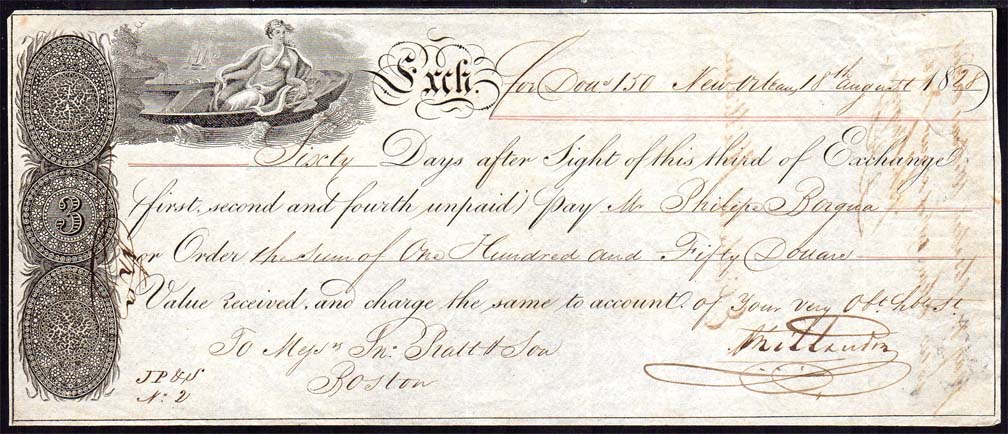 Exch. for Dous 150 New Orleans 18th august 1828
Sixty Days after Sight of this third of Exchange
(first, second and fourth unpaid) pay Mr Philipe Borgua
or Order the sum of One Hundred and Fifty Douars
Value received, and charge the same to account of Your very Obt. Sert.
To Mess rs Jno. Pratt & Son
Boston
JP&S
No. 2
3